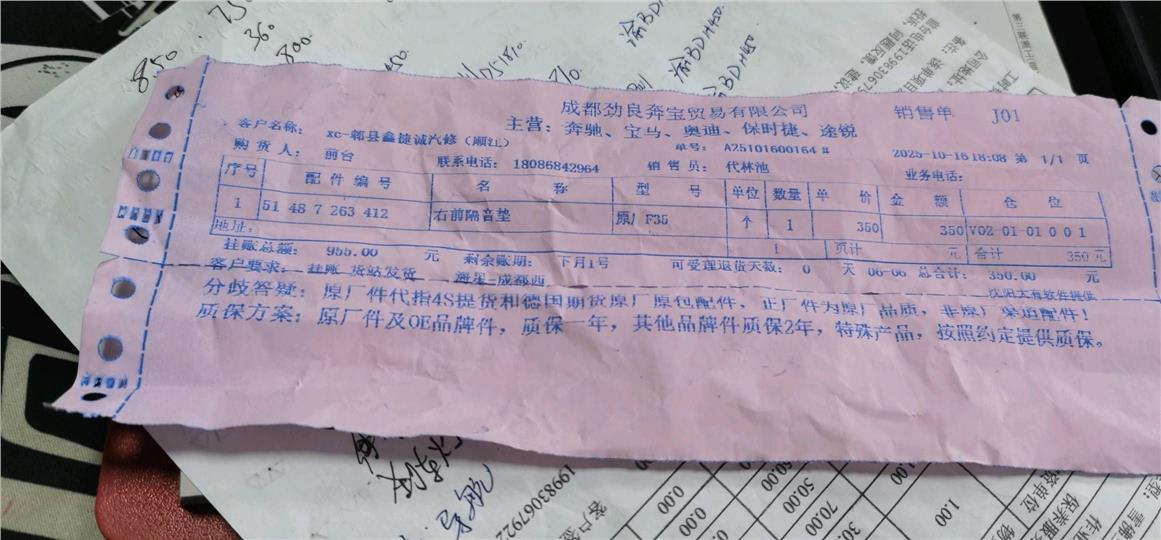 成都劲良奔宝贸易有限公司 销售单 J01
主营：奔驰、宝马、奥迪、保时捷、途锐
客户名称： xc-郫县鑫捷诚汽修（顺江） 单号： A25101600164 # 2025-10-16 18:08 第 1/1 页
购货人： 前台 联系电话： 18086842964 销售员： 代林池 业务电话：
序号 配件编号 名称 型号 单位 数量 单价 金额 仓位
1 51 48 7 263 412 右前隔音垫 原厂F35 个 1 350 350 V02-01-01 0 0 1
地址： 1 页计 元 合计 350 元
挂账总额： 955.00 元 剩余账期： 下月1号 可受理退货天数： 0 天 06-06 总合计： 350.00 元
客户要求： 挂账 货站发货 海星-成都西
分歧答疑：原厂件代指4S提货和德国期货原厂原包配件，正厂件为原厂品质，非原厂渠道配件！
质保方案：原厂件及OE品牌件，质保一年，其他品牌件质保2年，特殊产品，按照约定提供质保。
850
360
800
渝BDH450
渝BDH450
导航
19983067922
客户签
0.00
0.00
50.00
70.00
1.00
1.00